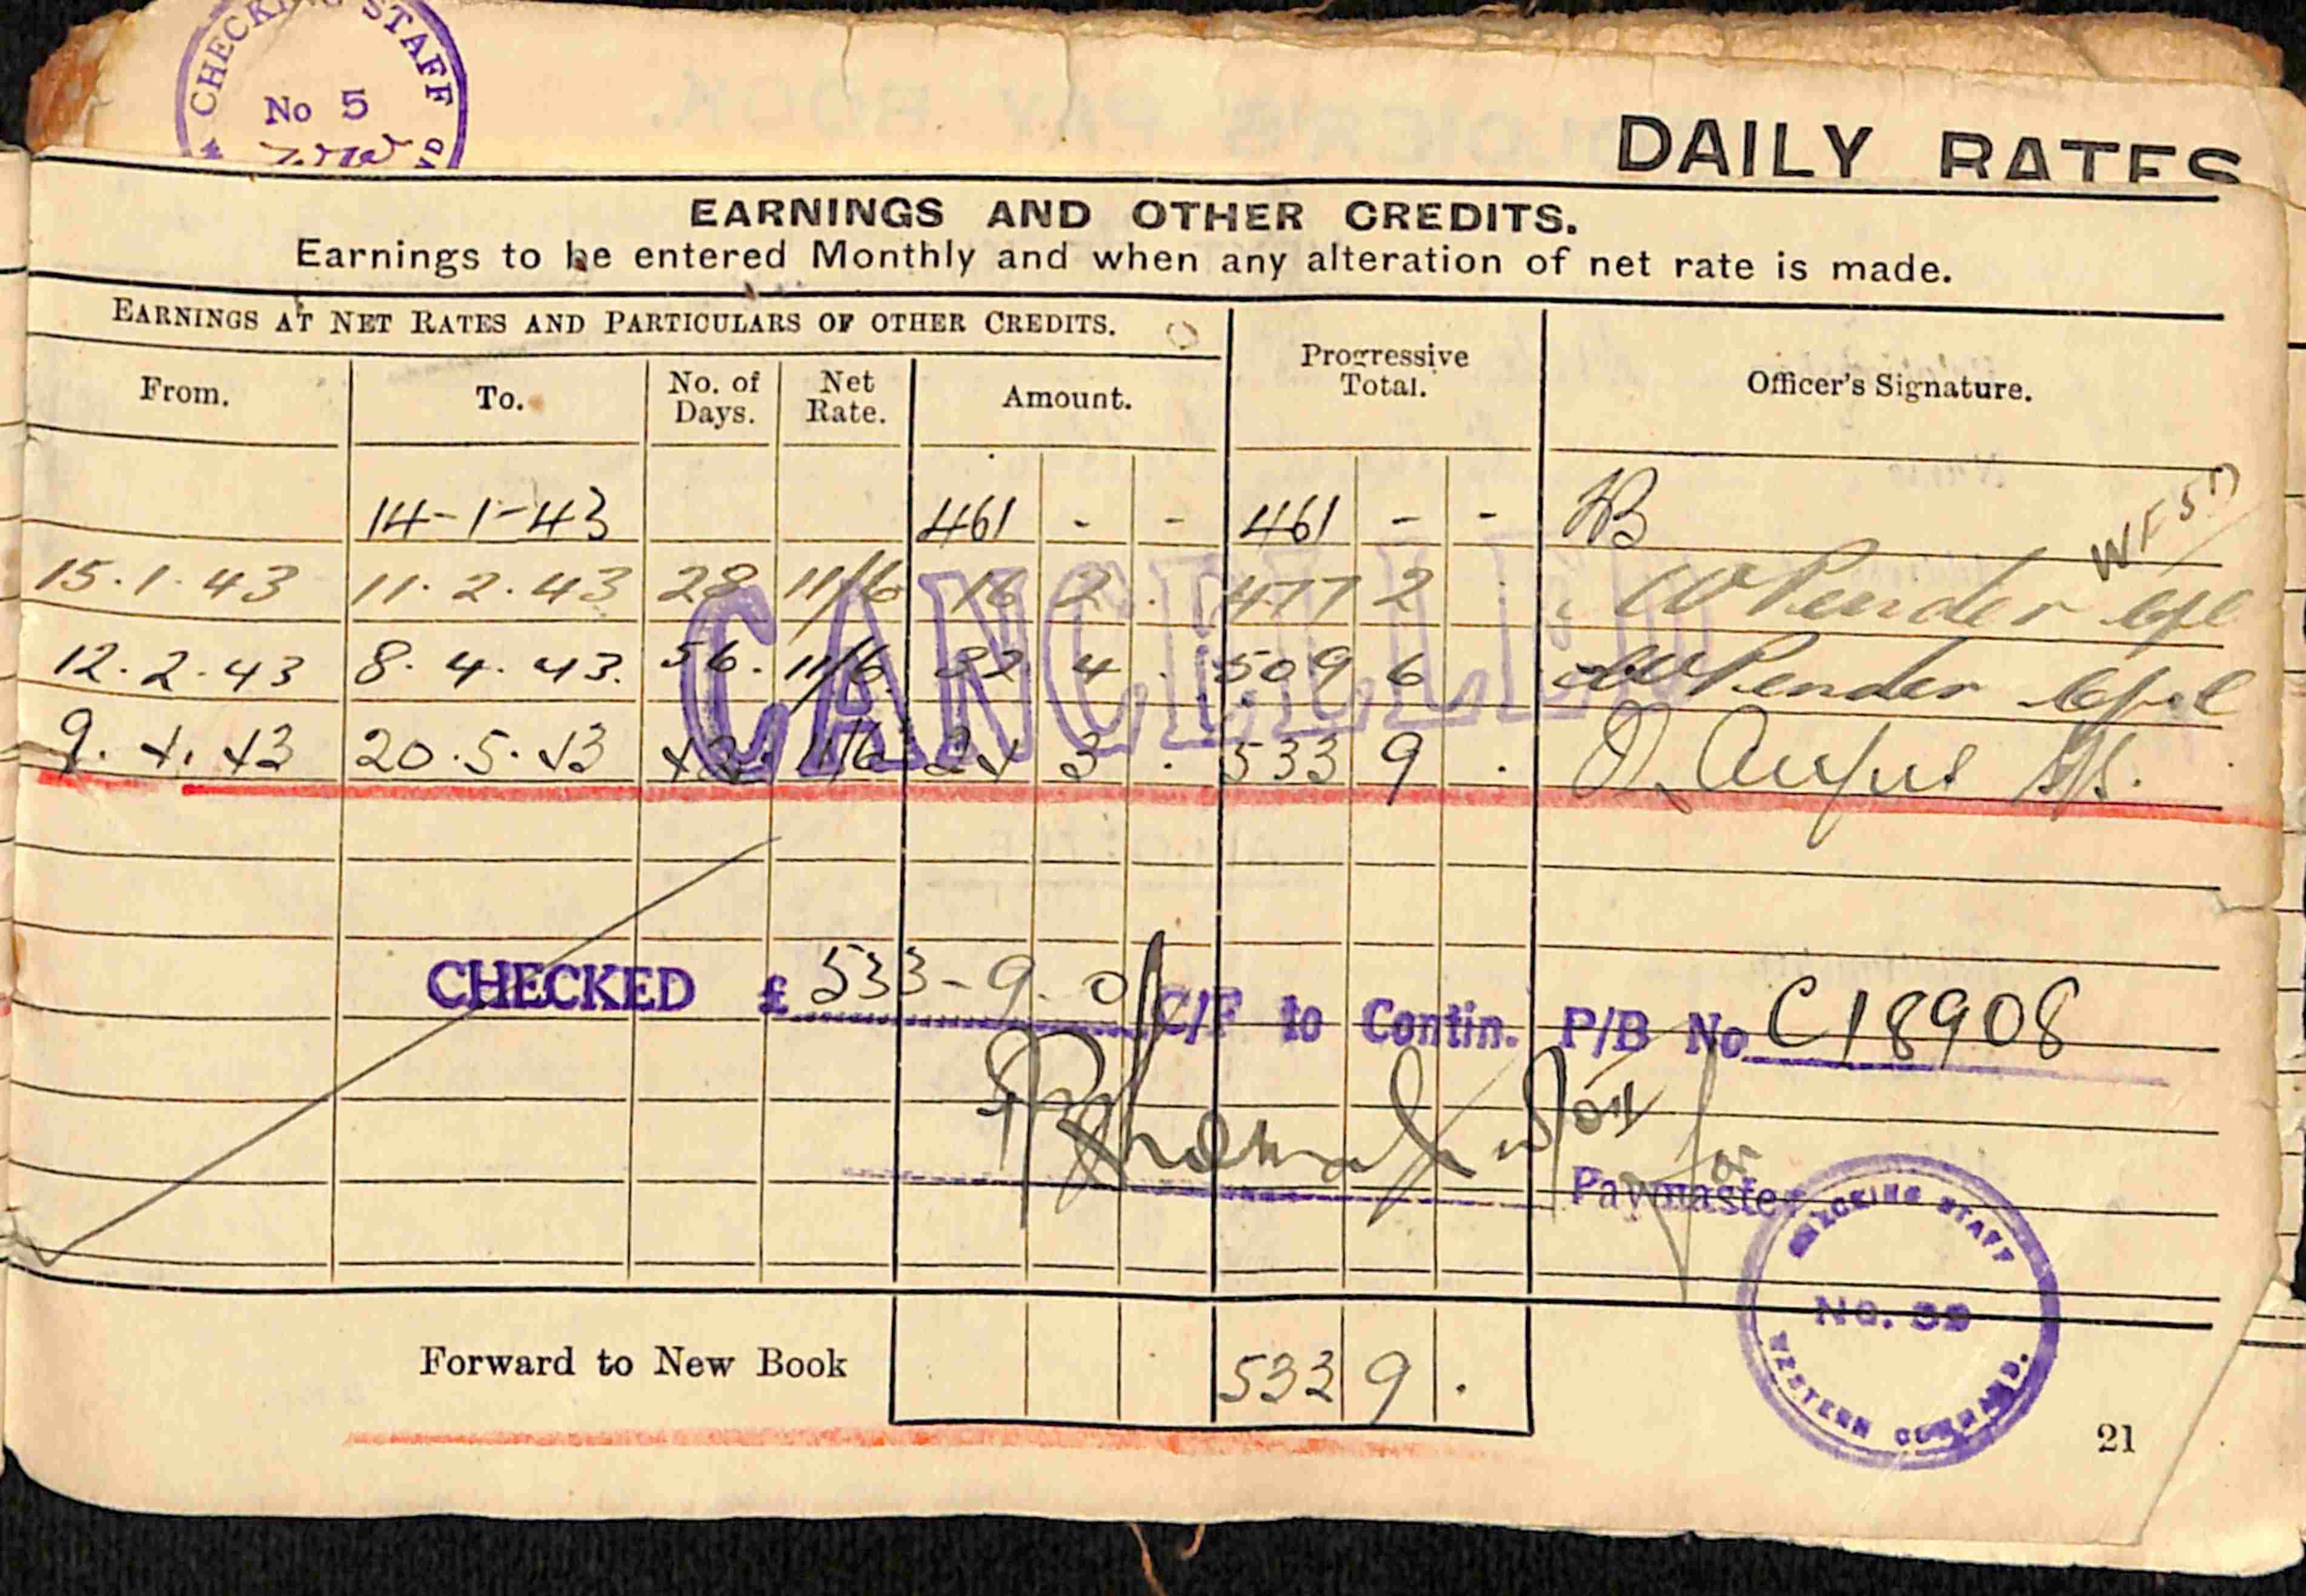 CHECKING STAFF
No 5
DAILY RATES
EARNINGS AND OTHER CREDITS.
Earnings to be entered Monthly and when any alteration of net rate is made.
EARNINGS AT NET RATES AND PARTICULARS OF OTHER CREDITS.
Progressive Total.
Officer's Signature.
From. To. No. of Days. Net Rate. Amount.
14-1-43 461 - - 461 - -
15.1.43 11.2.43 28 11/6 16 2 . 477 2 . W Pender
12.2.43 8.4.43. 56. 11/6 32 4 . 509 6 W Pender
9.4.43 20.5.43 42 11/6 24 3 . 533 9 .
CANCELLED
CHECKED £ 533-9-0 C/F to Contin. P/B No C18908
for
Paymaster
CHECKING STAFF
NO. 39
WESTERN COMMAND.
Forward to New Book 533 9 .
21